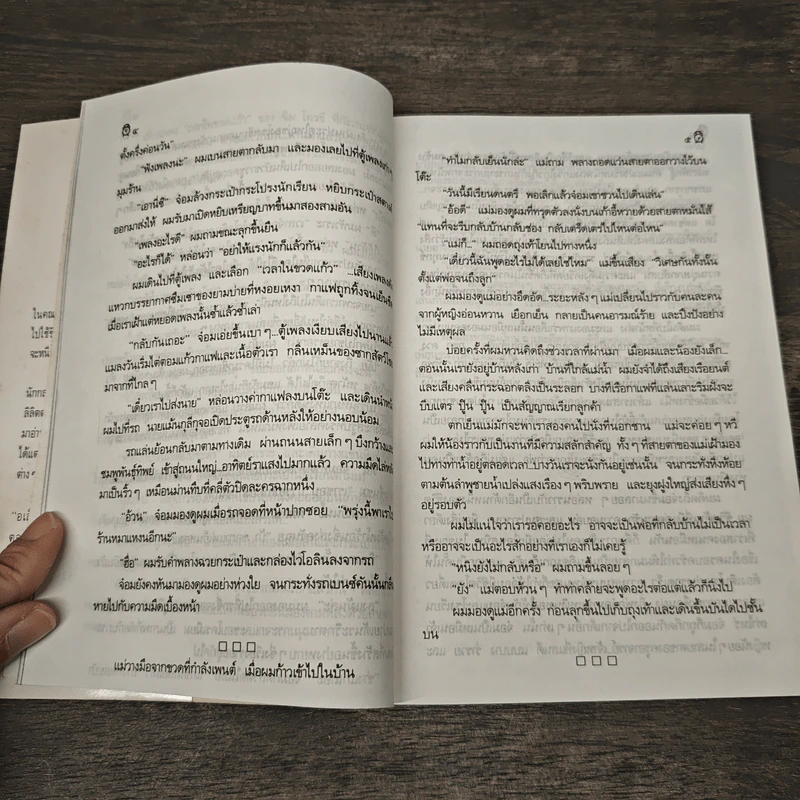 ในคณ
ไปใช้ร์
จะหนี
นักกะ
ลิลิต
มาอ่า
ได้แต่
ต่าง
๔
ตั้งครึ่งค่อนวัน"
"ฟังเพลงนะ" ผมเบนสายตากลับมา และมองเลยไปที่ตู้เพลงเก่า
มุมร้าน
"เอานี่ซี" จ๋อมล้วงกระเป๋ากระโปรงนักเรียน หยิบกระเป๋าสตางค์
ออกมาส่งให้ ผมรับมาเปิดหยิบเหรียญบาทขึ้นมาสองสามอัน
"เพลงอะไรดี" ผมถามขณะลุกขึ้นยืน
"อะไรก็ได้" หล่อนว่า "อย่าให้แรงนักก็แล้วกัน"
ผมเดินไปที่ตู้เพลง และเลือก "เวลาในขวดแก้ว" ...เสียงเพลง
แหวกบรรยากาศซึมเซาของยามบ่ายที่หงอยเหงา กาแฟถูกทิ้งจนเย็นชืด
เมื่อเราเฝ้าแต่หยอดเพลงนั้นซ้ำแล้วซ้ำเล่า
"กลับกันเถอะ" จ๋อมเอ่ยขึ้นเบา ๆ...ตู้เพลงเงียบเสียงไปนานแล้ว
แมลงวันเริ่มไต่ตอมแก้วกาแฟและเนื้อตัวเรา กลิ่นเหม็นของซากสัตว์
มาจากที่ไกล ๆ
"เดี๋ยวเราไปส่งนาย" หล่อนวางค่ากาแฟลงบนโต๊ะ และเดินนำ
ผมไปที่รถ นายแม้นกุลีกุจอเปิดประตูรถด้านหลังให้อย่างนอบน้อม
รถแล่นย้อนกลับมาตามทางเดิม ผ่านถนนสายเล็ก ๆ บึงกว้าง
ชมพูพันธุ์ทิพย์ เข้าสู่ถนนใหญ่...อาทิตย์ราแสงไปมากแล้ว ความมืด
มาเป็นริ้ว ๆ เหมือนม่านทึบที่คลี่ตัวปิดละครฉากหนึ่ง
"อ้วน" จ๋อมมองดูผมเมื่อรถจอดที่หน้าปากซอย "พรุ่งนี้พาเรา
ร้านหมาแหงนอีกนะ"
"ฮื่อ" ผมรับคำพลางฉวยกระเป๋าและกล่องไวโอลินลงจากรถ
จ๋อมยังคงหันมามองดูผมอย่างห่วงใย จนกระทั่งรถเบนซ์คันนั้น
หายไปกับความมืดเบื้องหน้า
□ □ □
แม่วางมือจากขวดที่กำลังเพนต์ เมื่อผมก้าวเข้าไปในบ้าน
๕
"ทำไมกลับเย็นนักล่ะ" แม่ถาม พลางถอดแว่นสายตาออกวางไว้บน
โต๊ะ
"วันนี้มีเรียนดนตรี พอเลิกแล้วจ๋อมเขาชวนไปเดินเล่น"
"อ้อดี" แม่มองดูผมที่ทรุดตัวลงนั่งบนเก้าอี้หวายด้วยสายตาหมั่นไส้
"แทนที่จะรีบกลับบ้านกลับช่อง กลับเตร็ดเตร่ไปไหนต่อไหน"
"แม่ก็..." ผมถอดถุงเท้าโยนไปทางหนึ่ง
"เดี๋ยวนี้ฉันพูดอะไรไม่ได้เลยใช่ไหม" แม่ขึ้นเสียง "วิเศษกันทั้งนั้น
ตั้งแต่พ่อจนถึงลูก"
ผมมองดูแม่อย่างอึดอัด...ระยะหลัง ๆ แม่เปลี่ยนไปราวกับคนละคน
จากผู้หญิงอ่อนหวาน เยือกเย็น กลายเป็นคนอารมณ์ร้าย และปึงปังอย่าง
ไม่มีเหตุผล
บ่อยครั้งที่ผมหวนคิดถึงช่วงเวลาที่ผ่านมา เมื่อผมและน้องยังเล็ก...
ตอนนั้นเรายังอยู่บ้านหลังเก่า บ้านที่ใกล้แม่น้ำ ผมยังจำได้ถึงเสียงเรือยนต์
และเสียงคลื่นกระฉอกตลิ่งเป็นระลอก บางทีเรือกาแฟที่แล่นเลาะริมฝั่งจะ
บีบแตร ปู๊น ปู๊น เป็นสัญญาณเรียกลูกค้า
ตกเย็นแม่มักจะพาเราสองคนไปนั่งที่นอกชาน แม่จะค่อย ๆ หวี
ผมให้น้องราวกับเป็นงานที่มีความสลักสำคัญ ทั้ง ๆ ที่สายตาของแม่เฝ้ามอง
ไปทางท่าน้ำอยู่ตลอดเวลา...บางวันเราจะนั่งกันอยู่เช่นนั้น จนกระทั่งหิ่งห้อย
ตามต้นลำพูชายน้ำเปล่งแสงเรือง ๆ พริบพราย และยุงฝูงใหญ่ส่งเสียงหึ่ง ๆ
อยู่รอบตัว
ผมไม่แน่ใจว่าเรารอคอยอะไร อาจจะเป็นพ่อที่กลับบ้านไม่เป็นเวลา
หรืออาจจะเป็นอะไรสักอย่างที่เราเองก็ไม่เคยรู้
"หนิงยังไม่กลับหรือ" ผมถามขึ้นลอย ๆ
"ยัง" แม่ตอบห้วน ๆ ทำท่าคล้ายจะพูดอะไรต่อแต่แล้วก็นิ่งไป
ผมมองดูแม่อีกครั้ง ก่อนลุกขึ้นไปเก็บถุงเท้าและเดินขึ้นบันไดไปชั้น
บน
□ □ □